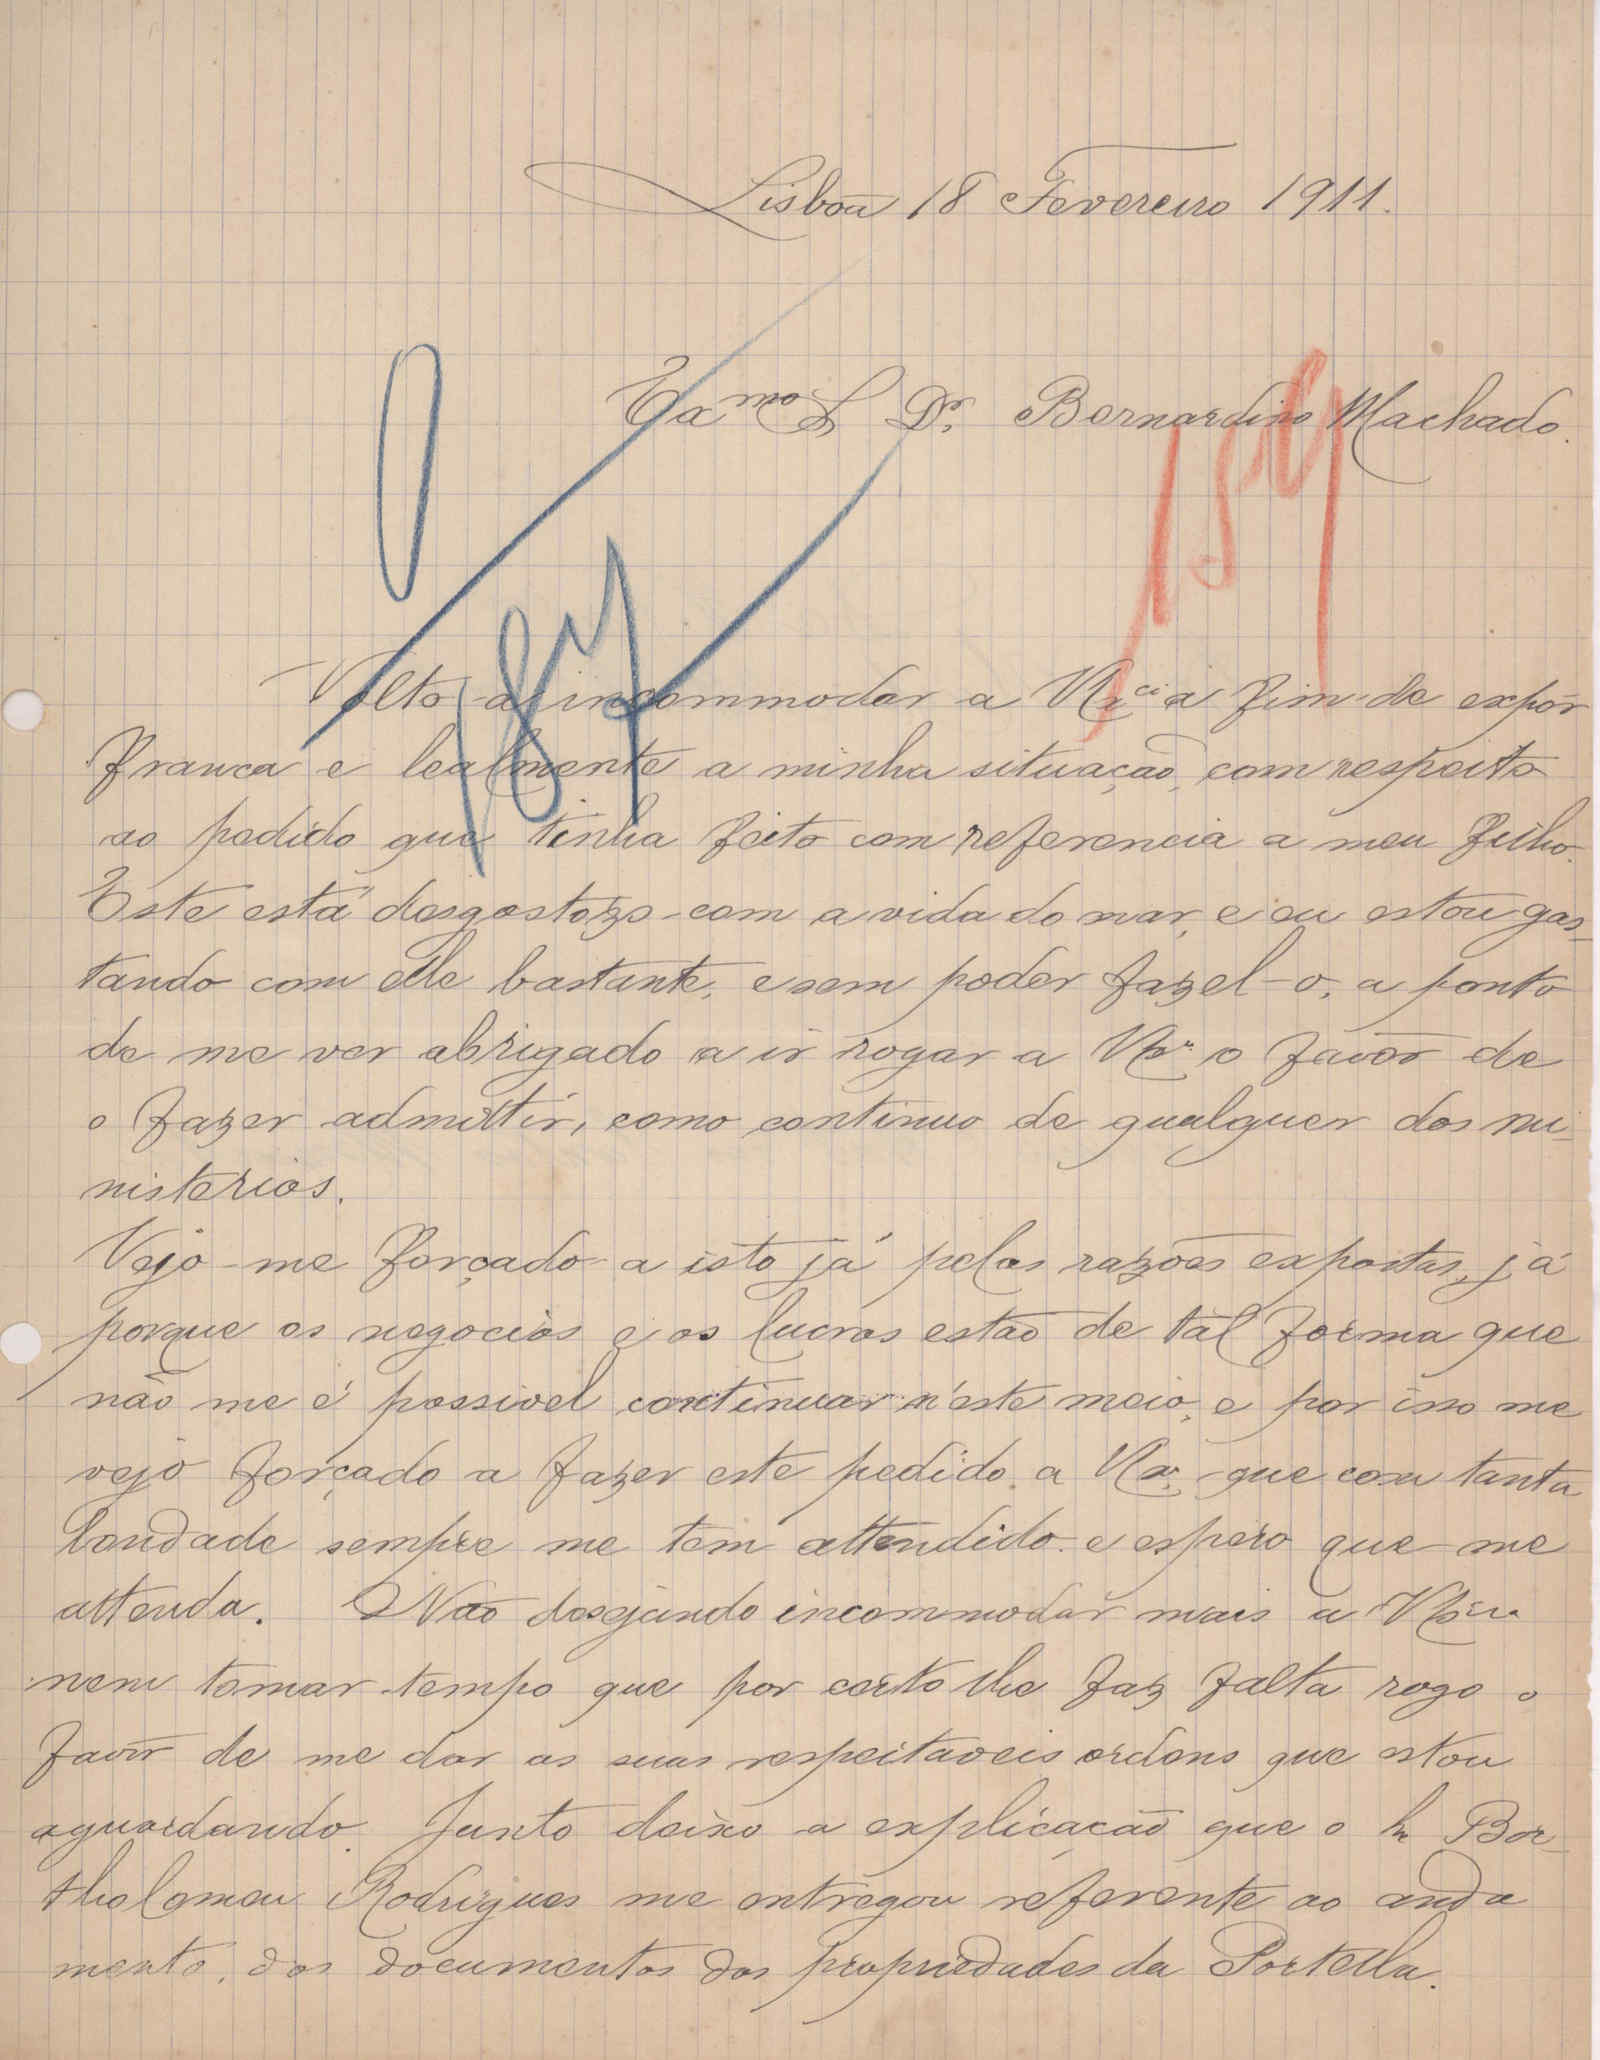 Lisboa 18 Fevereiro 1911.
Exmo Sr Dr. Bernardino Machado.
Volto a incommodar a V. Excia a fim de expôr
franca e lealmente a minha situação, com respeito
ao pedido que tinha feito com referencia a meu filho.
Este está desgostozo com a vida do mar, e eu estou gas-
tando com elle bastante, e sem poder fazel-o, a ponto
de me ver obrigado a ir rogar a V. Exa o favor de
o fazer admittir, como continuo de qualquer dos mi-
nisterios.
Vejo-me forçado a isto já pelas razões expostas, já
porque os negocios e os lucros estão de tal forma que
não me é possivel continuar n'este meio, e por isso me
vejo forçado a fazer este pedido a V. Exa. que com tanta
bondade sempre me tem attendido e espero que me
attenda. Não desejando incommodar mais a V. Excia
nem tomar tempo que por certo lhe faz falta rogo o
favor de me dar as suas respeitaveis ordens que estou
aguardando. Junto deixo a explicação que o Sr Bar-
tholomeu Rodrigues me entregou referente ao anda
mento, dos documentos das propriedades da Portella.